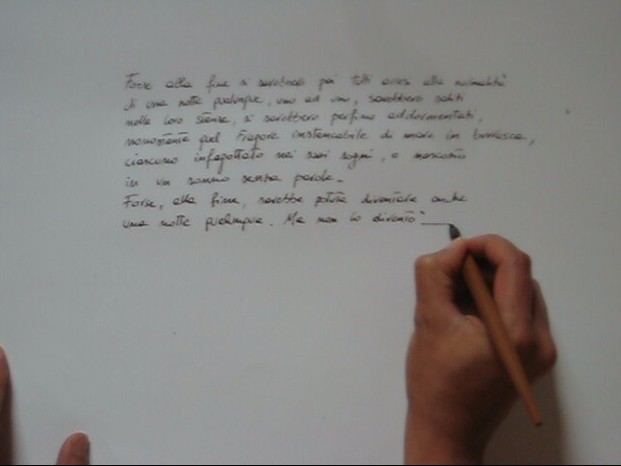 Forse alla fine si sarebbero poi tutti arresi alla normalità
di una notte qualunque, uno ad uno, sarebbero saliti
nelle loro stanze, si sarebbero perfino addormentati,
nonostante quel fragore instancabile di mare in burrasca,
ciascuno infagottato nei suoi sogni, o nascosto
in un sonno senza parole.
Forse, alla fine, sarebbe potuta diventare anche
una notte qualunque. Ma non lo diventò